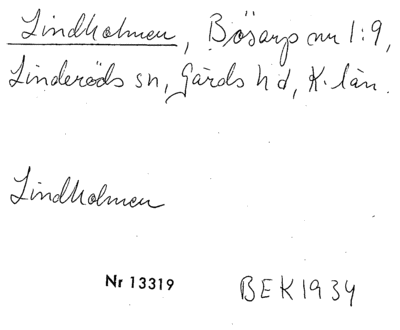 Lindholmen, Bösarp nr 1:9,
Linderöds sn, Gärds hd, K. län.
Lindholmen
Nr 13319 BEK1934